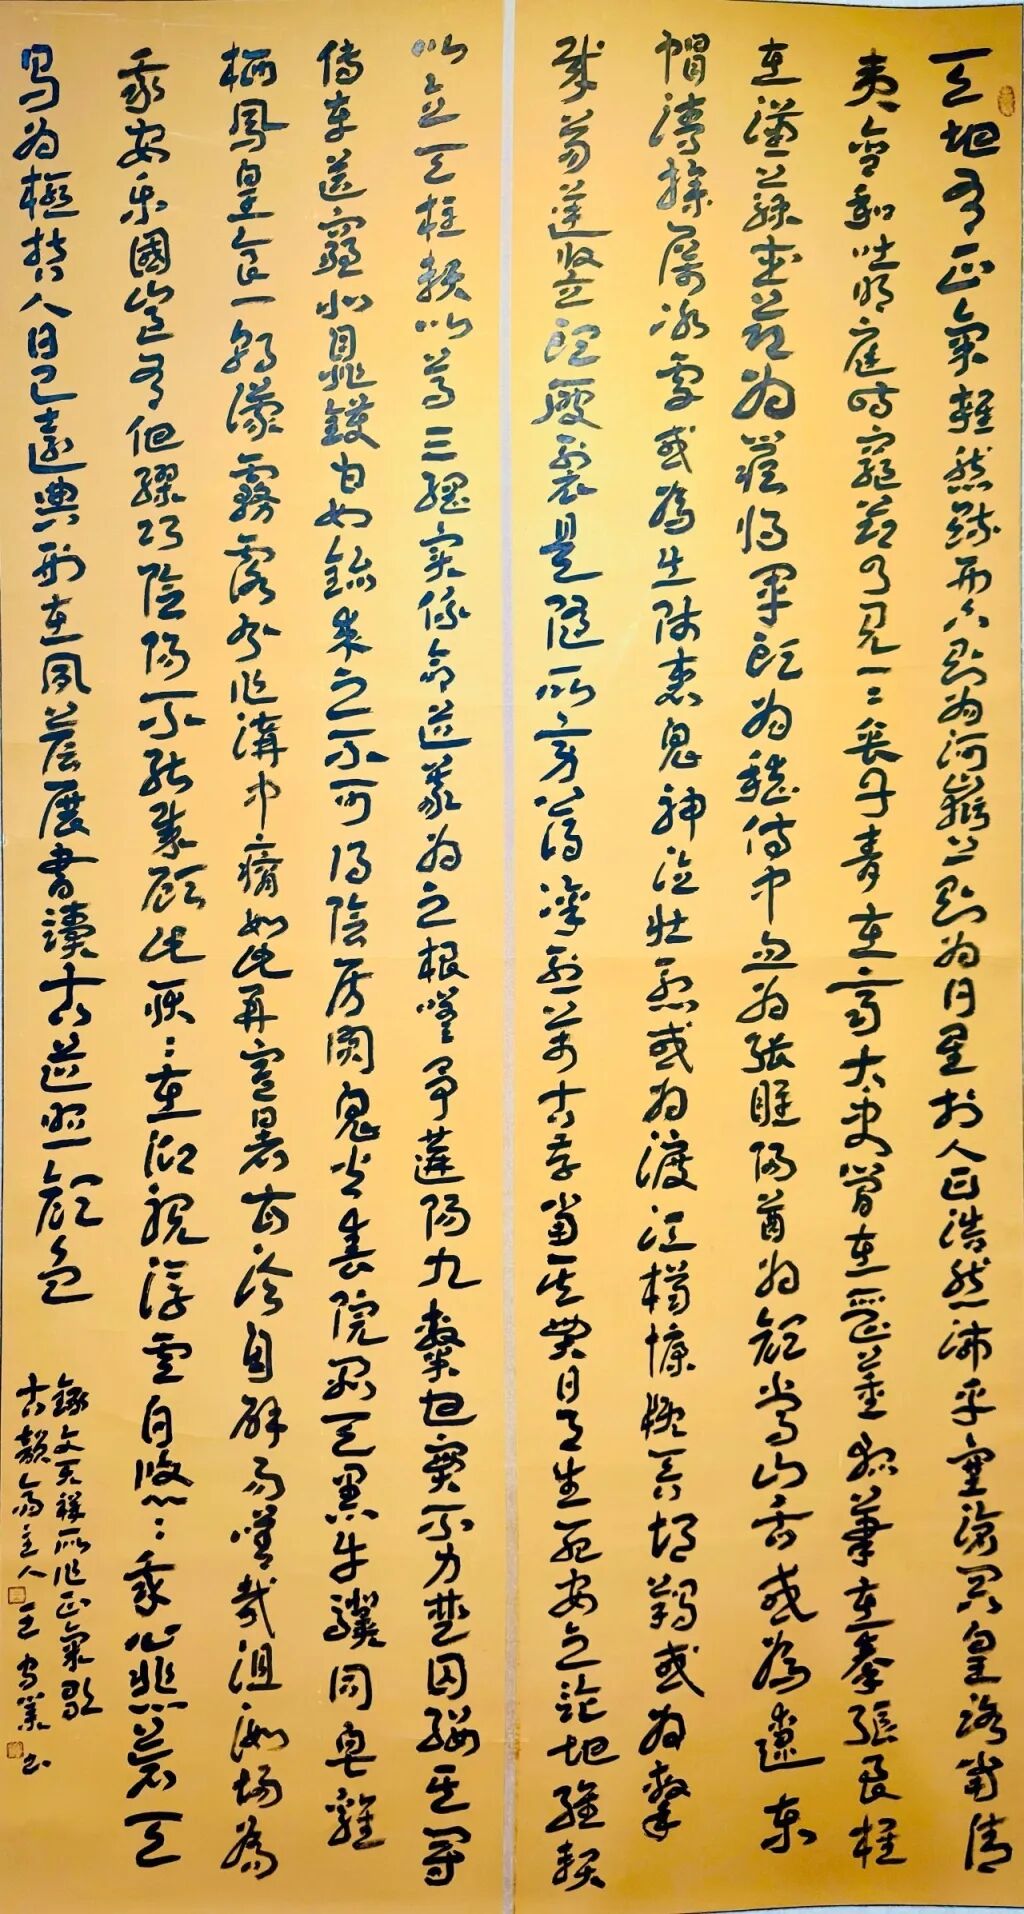 天地有正气雜然賦流形下則為河嶽上則為日星於人曰浩然沛乎塞滄冥皇路當清
夷含和吐明庭時窮節乃見一一垂丹青在齊太史簡在晉董狐筆在秦張良椎
在漢蘇武節為嚴將軍頭為嵇侍中血為張睢陽齒為顏常山舌或為遼東
帽清操厲冰雪或為出師表鬼神泣壯烈或為渡江楫慷慨吞胡羯或為擊
賊笏逆豎頭破裂是氣所旁薄凜烈萬古存當其貫日月生死安足論地維賴
以立天柱賴以尊三綱實係命道義為之根嗟予遘陽九隸也實不力楚囚纓其冠
傳車送窮北鼎鑊甘如飴求之不可得陰房闃鬼火春院閟天黑牛驥同皂雞
棲鳳凰食一朝濛霧露分作溝中瘠如此再寒暑百沴自辟易嗟哉沮洳場為
我安樂國豈有他繆巧陰陽不能賊顧此耿耿在仰視浮雲白悠悠我心悲蒼天
曷為極哲人日已遠典刑在夙昔風簷展書讀古道照顏色
錄文天祥所作正氣歌
古韻翁主人王守業书